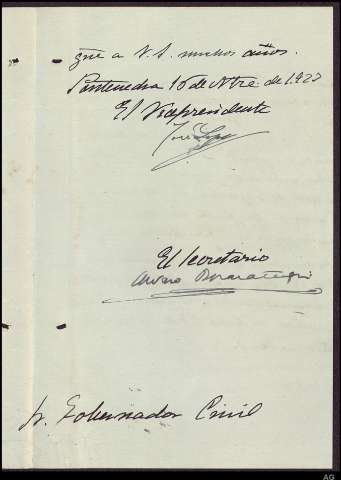 gue a V. S. muchos años.
Pontevedra 16 de de 1.923
El Vicepresidente
José
El Secretario
Alvaro
Sr. Gobernador Civil
AG